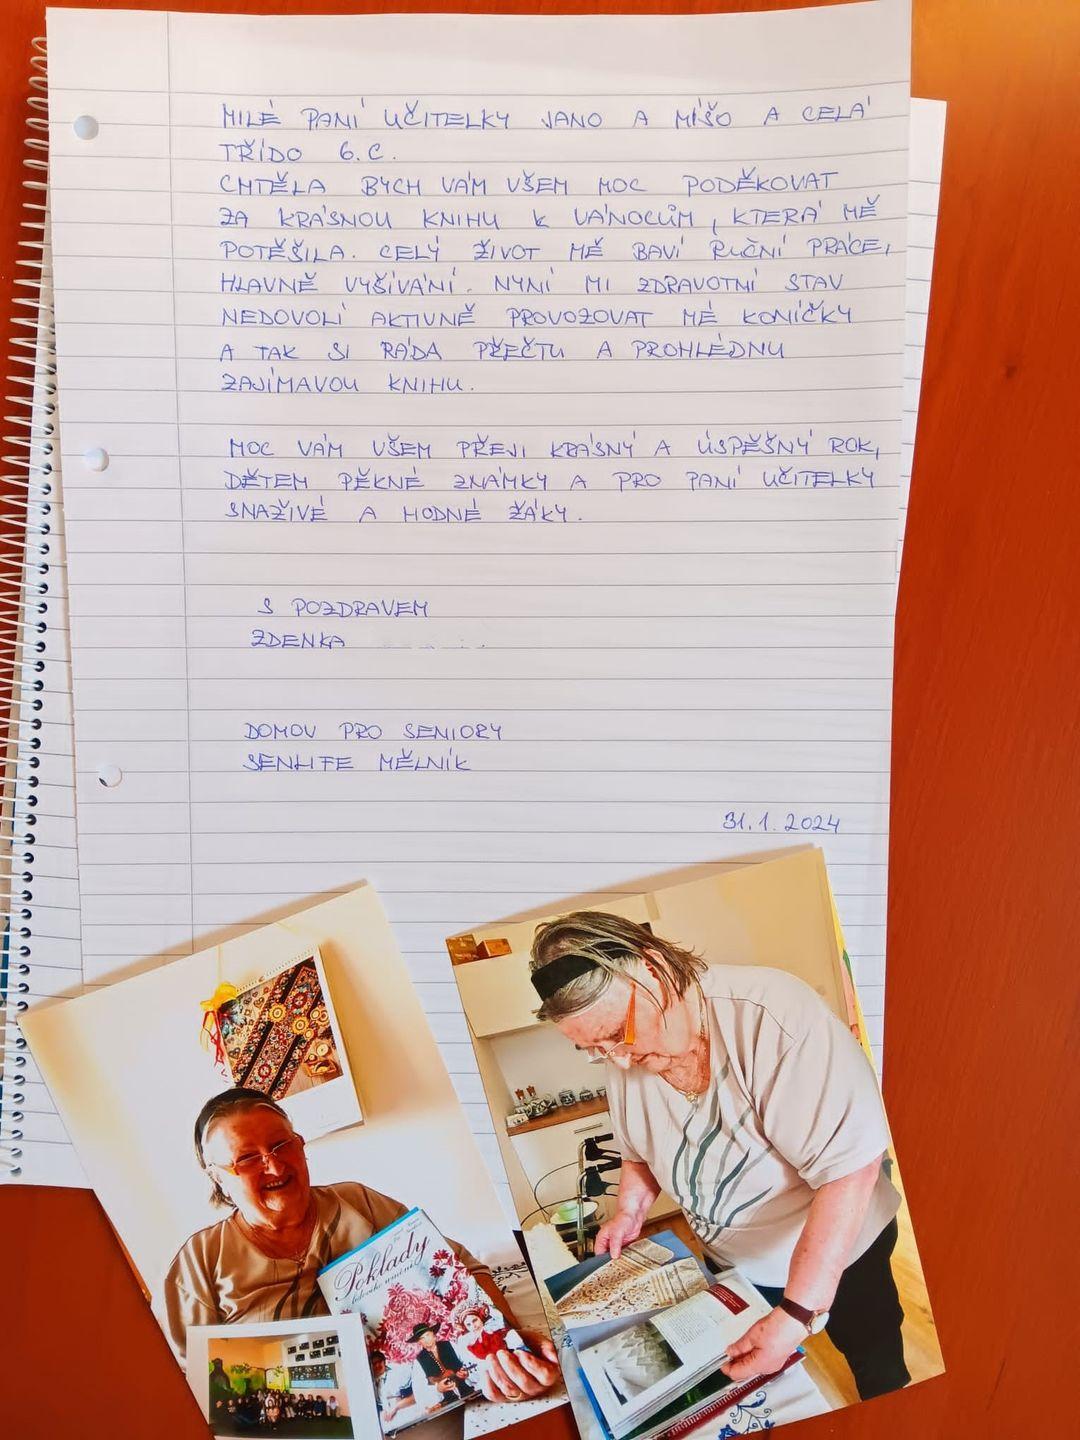 MILÉ PANÍ UČITELKY JANO A MÍŠO A CELÁ
TŘÍDO 6.C.
CHTĚLA BYCH VÁM VŠEM MOC PODĚKOVAT
ZA KRÁSNOU KNIHU K VÁNOCŮM, KTERÁ MĚ
POTĚŠILA. CELÝ ŽIVOT MĚ BAVÍ RUČNÍ PRÁCE,
HLAVNĚ VYŠÍVÁNÍ. NYNÍ MI ZDRAVOTNÍ STAV
NEDOVOLÍ AKTIVNĚ PROVOZOVAT MÉ KONÍČKY
A TAK SI RÁDA PŘEČTU A PROHLÉDNU
ZAJÍMAVOU KNIHU.
MOC VÁM VŠEM PŘEJI KRÁSNÝ A ÚSPĚŠNÝ ROK,
DĚTEM PĚKNÉ ZNÁMKY A PRO PANÍ UČITELKY
SNAŽIVÉ A HODNÉ ŽÁKY.
S POZDRAVEM
ZDENKA
DOMOV PRO SENIORY
SENLIFE MĚLNÍK
31.1.2024
Poklady
lidového umění